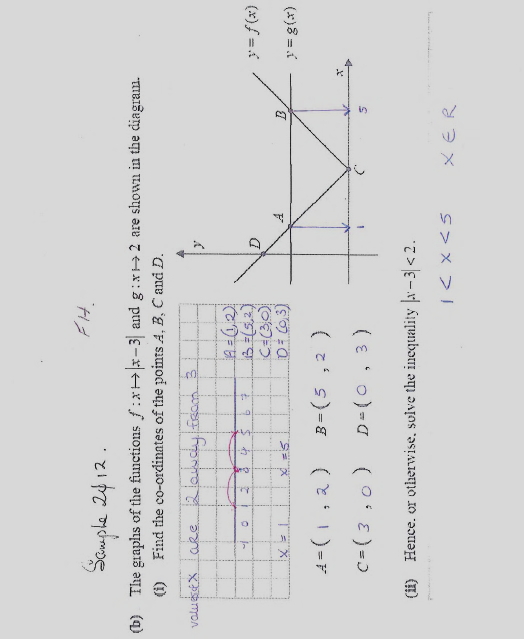 Sample 2012.
FH.
(b) The graphs of the functions f : x ↦ |x − 3| and g : x ↦ 2 are shown in the diagram.
(i) Find the co-ordinates of the points A, B, C and D.
values x are 2 away from 3
-1 0 1 2 3 4 5 6 7
x = 1 x = 5
A = (1, 2)
B = (5, 2)
C = (3, 0)
D = (0, 3)
y
D
A
B
C
1
5
x
y = f(x)
y = g(x)
A = ( 1 , 2 ) B = ( 5 , 2 )
C = ( 3 , 0 ) D = ( 0 , 3 )
(ii) Hence, or otherwise, solve the inequality |x − 3| < 2.
1 < x < 5 x ∈ R